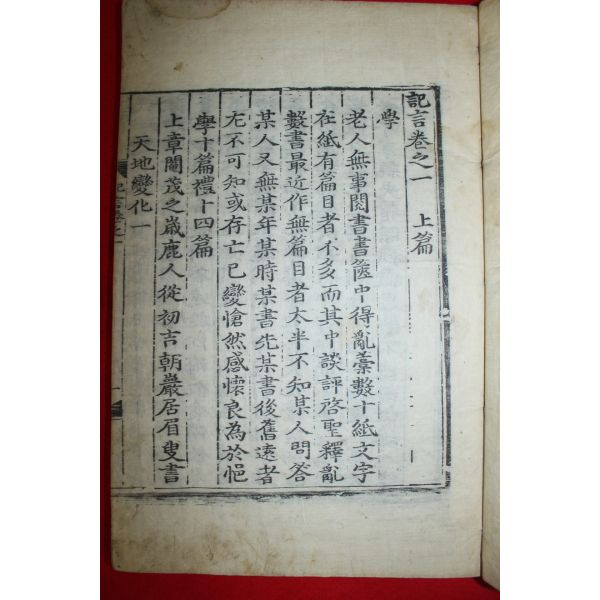 記言卷之一 上篇
學
老人無事閱書書篋中得亂藁數十紙文字
在紙有篇目者不多而其中談評啓聖釋亂
數書最近作無篇目者太半不知某人問答
某人又無某年某時某書先某書後舊遠者
无不可知或存亡已變愴然感懷良為於悒
學十篇禮十四篇
上章閹茂之歲鹿人從初吉朝巖居眉叟書
天地變化一
記言卷之一